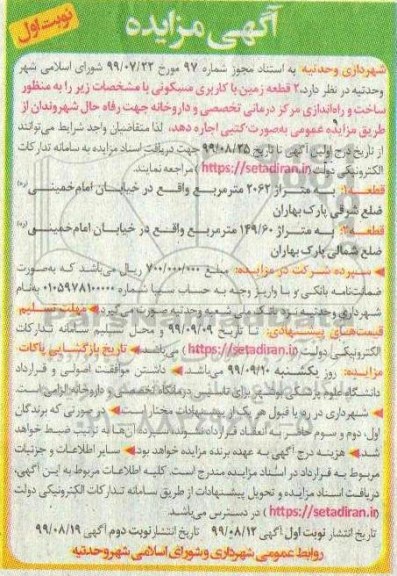 آگهی مزایده
نوبت اول
شهرداری وحدتیه به استناد مجوز شماره ۹۷ مورخ ۹۹/۰۷/۲۲ شورای اسلامی شهر
وحدتیه در نظر دارد، ۲ قطعه زمین با کاربری مسکونی با مشخصات زیر را به منظور
ساخت و راه‌اندازی مرکز درمانی تخصصی و داروخانه جهت رفاه حال شهروندان از
طریق مزایده عمومی به‌صورت کتبی اجاره دهد، لذا متقاضیان واجد شرایط می‌توانند
از تاریخ درج اولین آگهی تا تاریخ ۹۹/۰۸/۲۵ جهت دریافت اسناد مزایده به سامانه تدارکات
الکترونیکی دولت (https://setadiran.ir) مراجعه نمایند.
قطعه۱: به متراژ ۲۰۶۲ مترمربع واقع در خیابان امام‌خمینی(ره)
ضلع شرقی پارک بهاران
قطعه۲: به متراژ ۱۴۹/۶۰ مترمربع واقع در خیابان امام‌خمینی(ره)
ضلع شمالی پارک بهاران
سپرده شرکت در مزایده: مبلغ ۷۰۰/۰۰۰/۰۰۰ ریال می‌باشد که به‌صورت
ضمانت‌نامه بانکی و یا واریز وجه به حساب سیبا شماره ۰۱۰۵۹۷۸۱۰۰۰۰۰ به‌نام
شهرداری وحدتیه نزد بانک ملی شعبه وحدتیه صورت می‌گیرد مهلت تسلیم
قیمت‌های پیشنهادی: تا تاریخ ۹۹/۰۹/۰۹ و محل تسلیم سامانه تدارکات
الکترونیکی دولت (https://setadiran.ir) می‌باشد تاریخ بازگشایی پاکات
مزایده: روز یکشنبه ۹۹/۰۹/۱۰ می‌باشد. داشتن موافقت اصولی و قرارداد
دانشگاه علوم پزشکی بوشهر برای تأسیس درمانگاه تخصصی و داروخانه الزامی است.
شهرداری در رد یا قبول هر یک از پیشنهادات مختار است. در صورتی که برندگان
اول، دوم و سوم حاضر به انعقاد قرارداد نشوند سپرده آن‌ها به ترتیب ضبط خواهد
شد. هزینه درج آگهی به عهده برنده مزایده خواهد بود سایر اطلاعات و جزئیات
مربوط به قرارداد در اسناد مزایده مندرج است. کلیه اطلاعات مربوط به این آگهی،
دریافت اسناد مزایده و تحویل پیشنهادات از طریق سامانه تدارکات الکترونیکی دولت
(https://setadiran.ir) در دسترس می‌باشد.
تاریخ انتشار نوبت اول آگهی ۹۹/۰۸/۱۲ تاریخ انتشار نوبت دوم آگهی ۹۹/۰۸/۱۹
روابط عمومی شهرداری و شورای اسلامی شهر وحدتیه